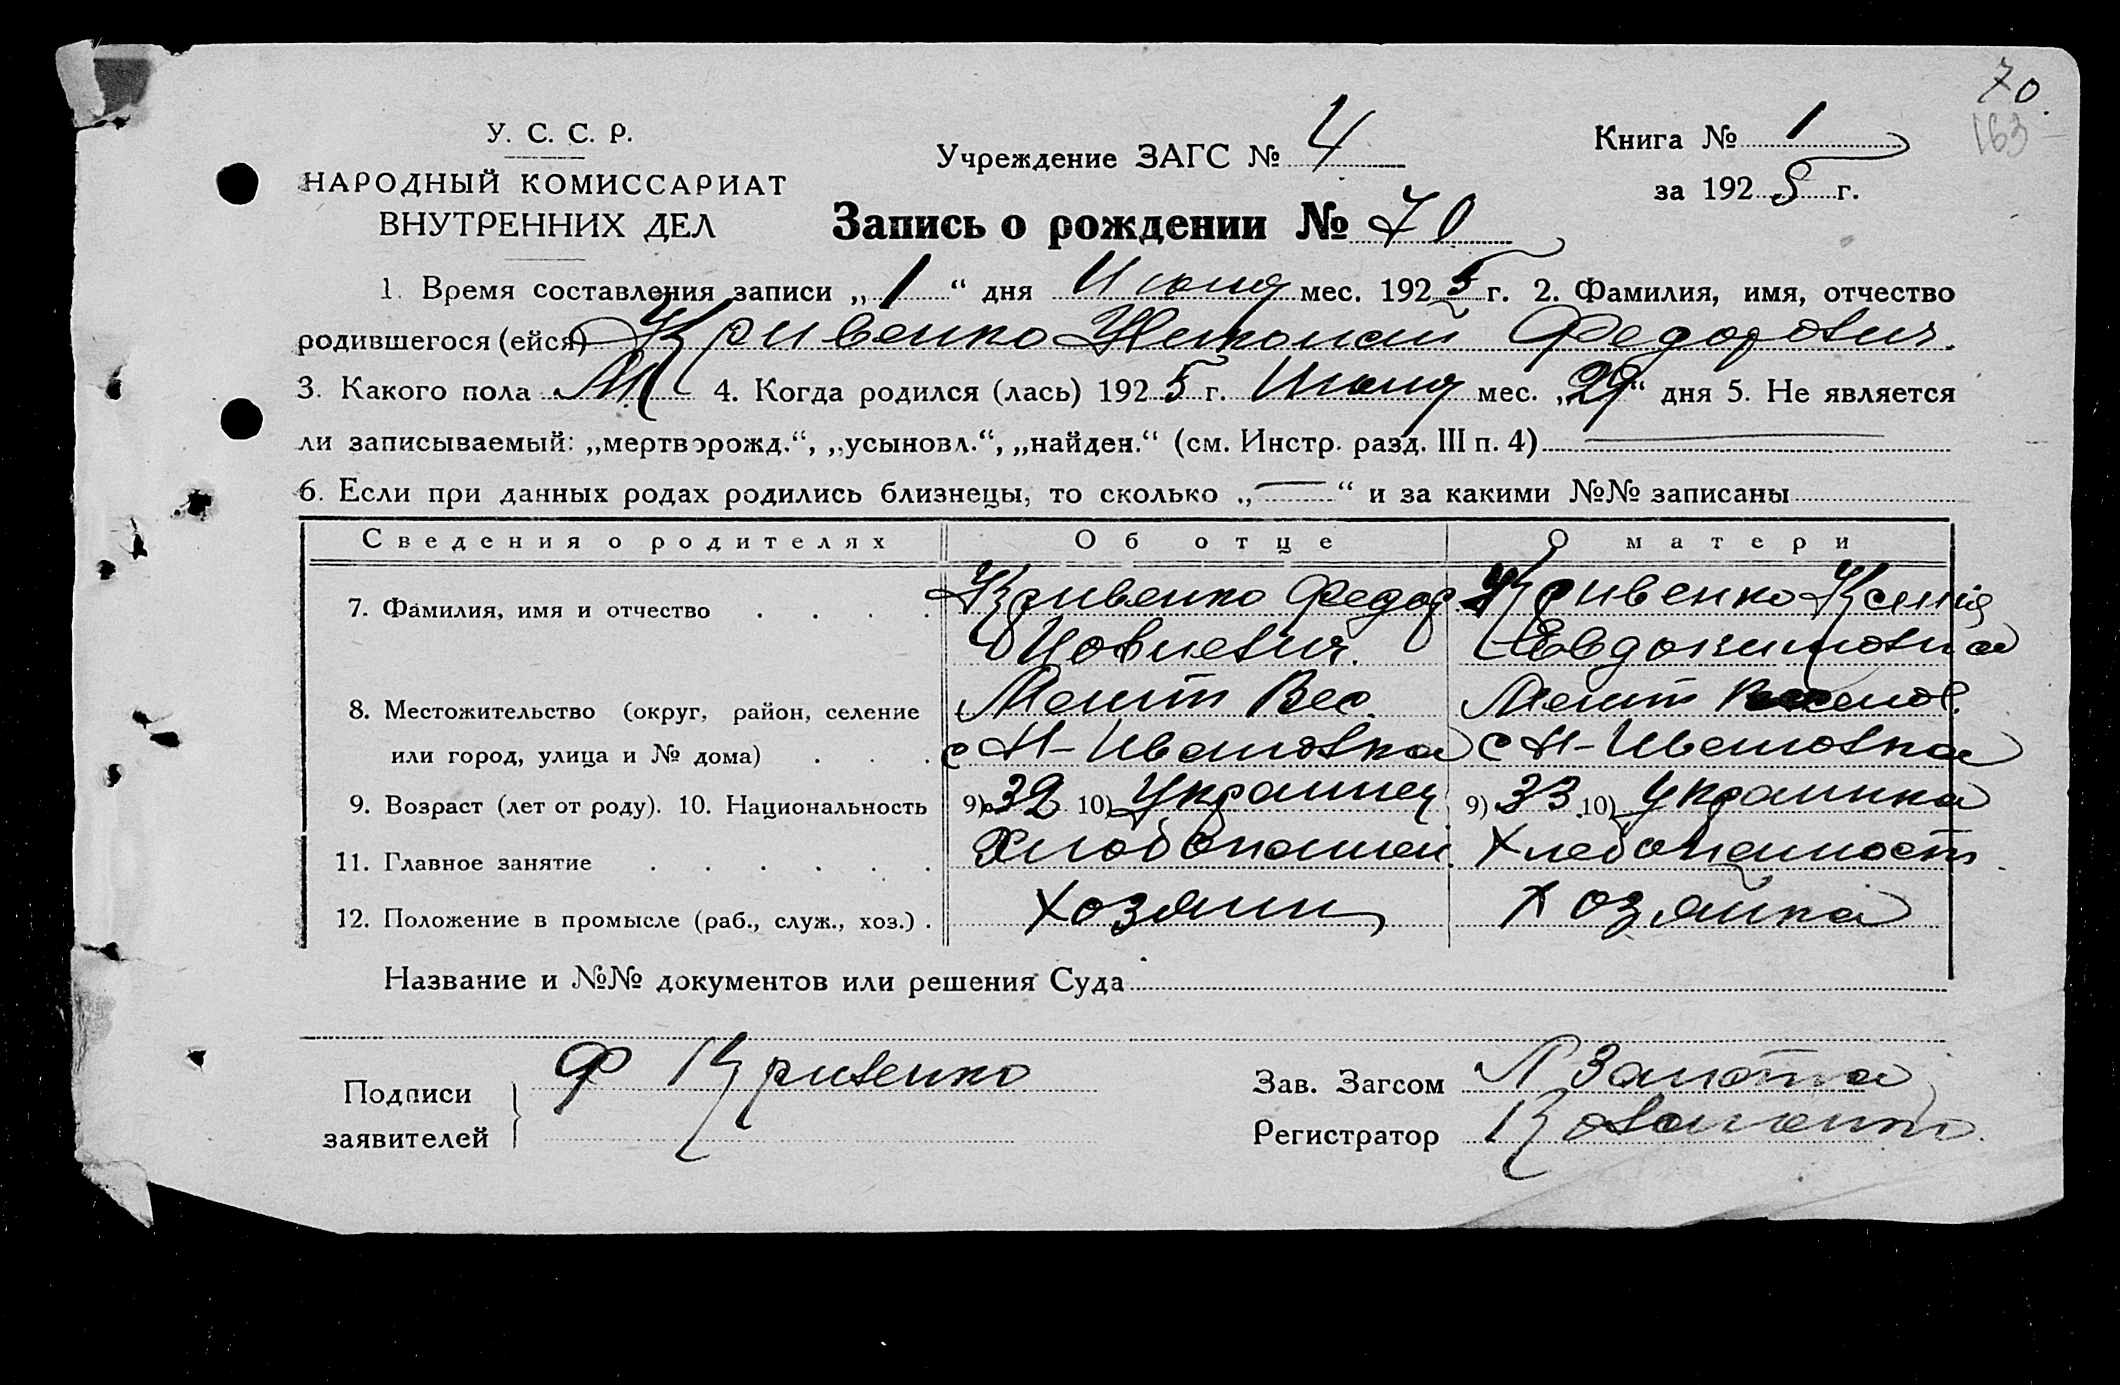 70
163
У. С. С. Р.
НАРОДНЫЙ КОМИССАРИАТ
ВНУТРЕННИХ ДЕЛ
Учреждение ЗАГС № 4
Книга № 1
за 1925 г.
Запись о рождении № 70
1. Время составления записи „1“ дня Июня мес. 1925 г. 2. Фамилия, имя, отчество
родившегося (ейся) Кривенко Николай Федорович.
3. Какого пола М 4. Когда родился (лась) 1925 г. мес. „29“ дня 5. Не является
ли записываемый: „мертворожд.“, „усыновл.“, „найден.“ (см. Инстр. разд. III п. 4)
6. Если при данных родах родились близнецы, то сколько „—“ и за какими №№ записаны
Сведения о родителях Об отце О матери
7. Фамилия, имя и отчество Кривенко Федор Кривенко Ксения
Евдокимовна
8. Местожительство (округ, район, селение Мелит Вес. Мелит
или город, улица и № дома) с Н-Ивановка с Н-Ивановка
9. Возраст (лет от роду). 10. Национальность 9) 32 10) Украинец 9) 33 10) Украинка
11. Главное занятие Хлебопашец. Хлебопашест.
12. Положение в промысле (раб., служ., хоз.) Хозяин Хозяйка
Название и №№ документов или решения Суда
Подписи
заявителей
Ф Кривенко
Зав. Загсом
Регистратор